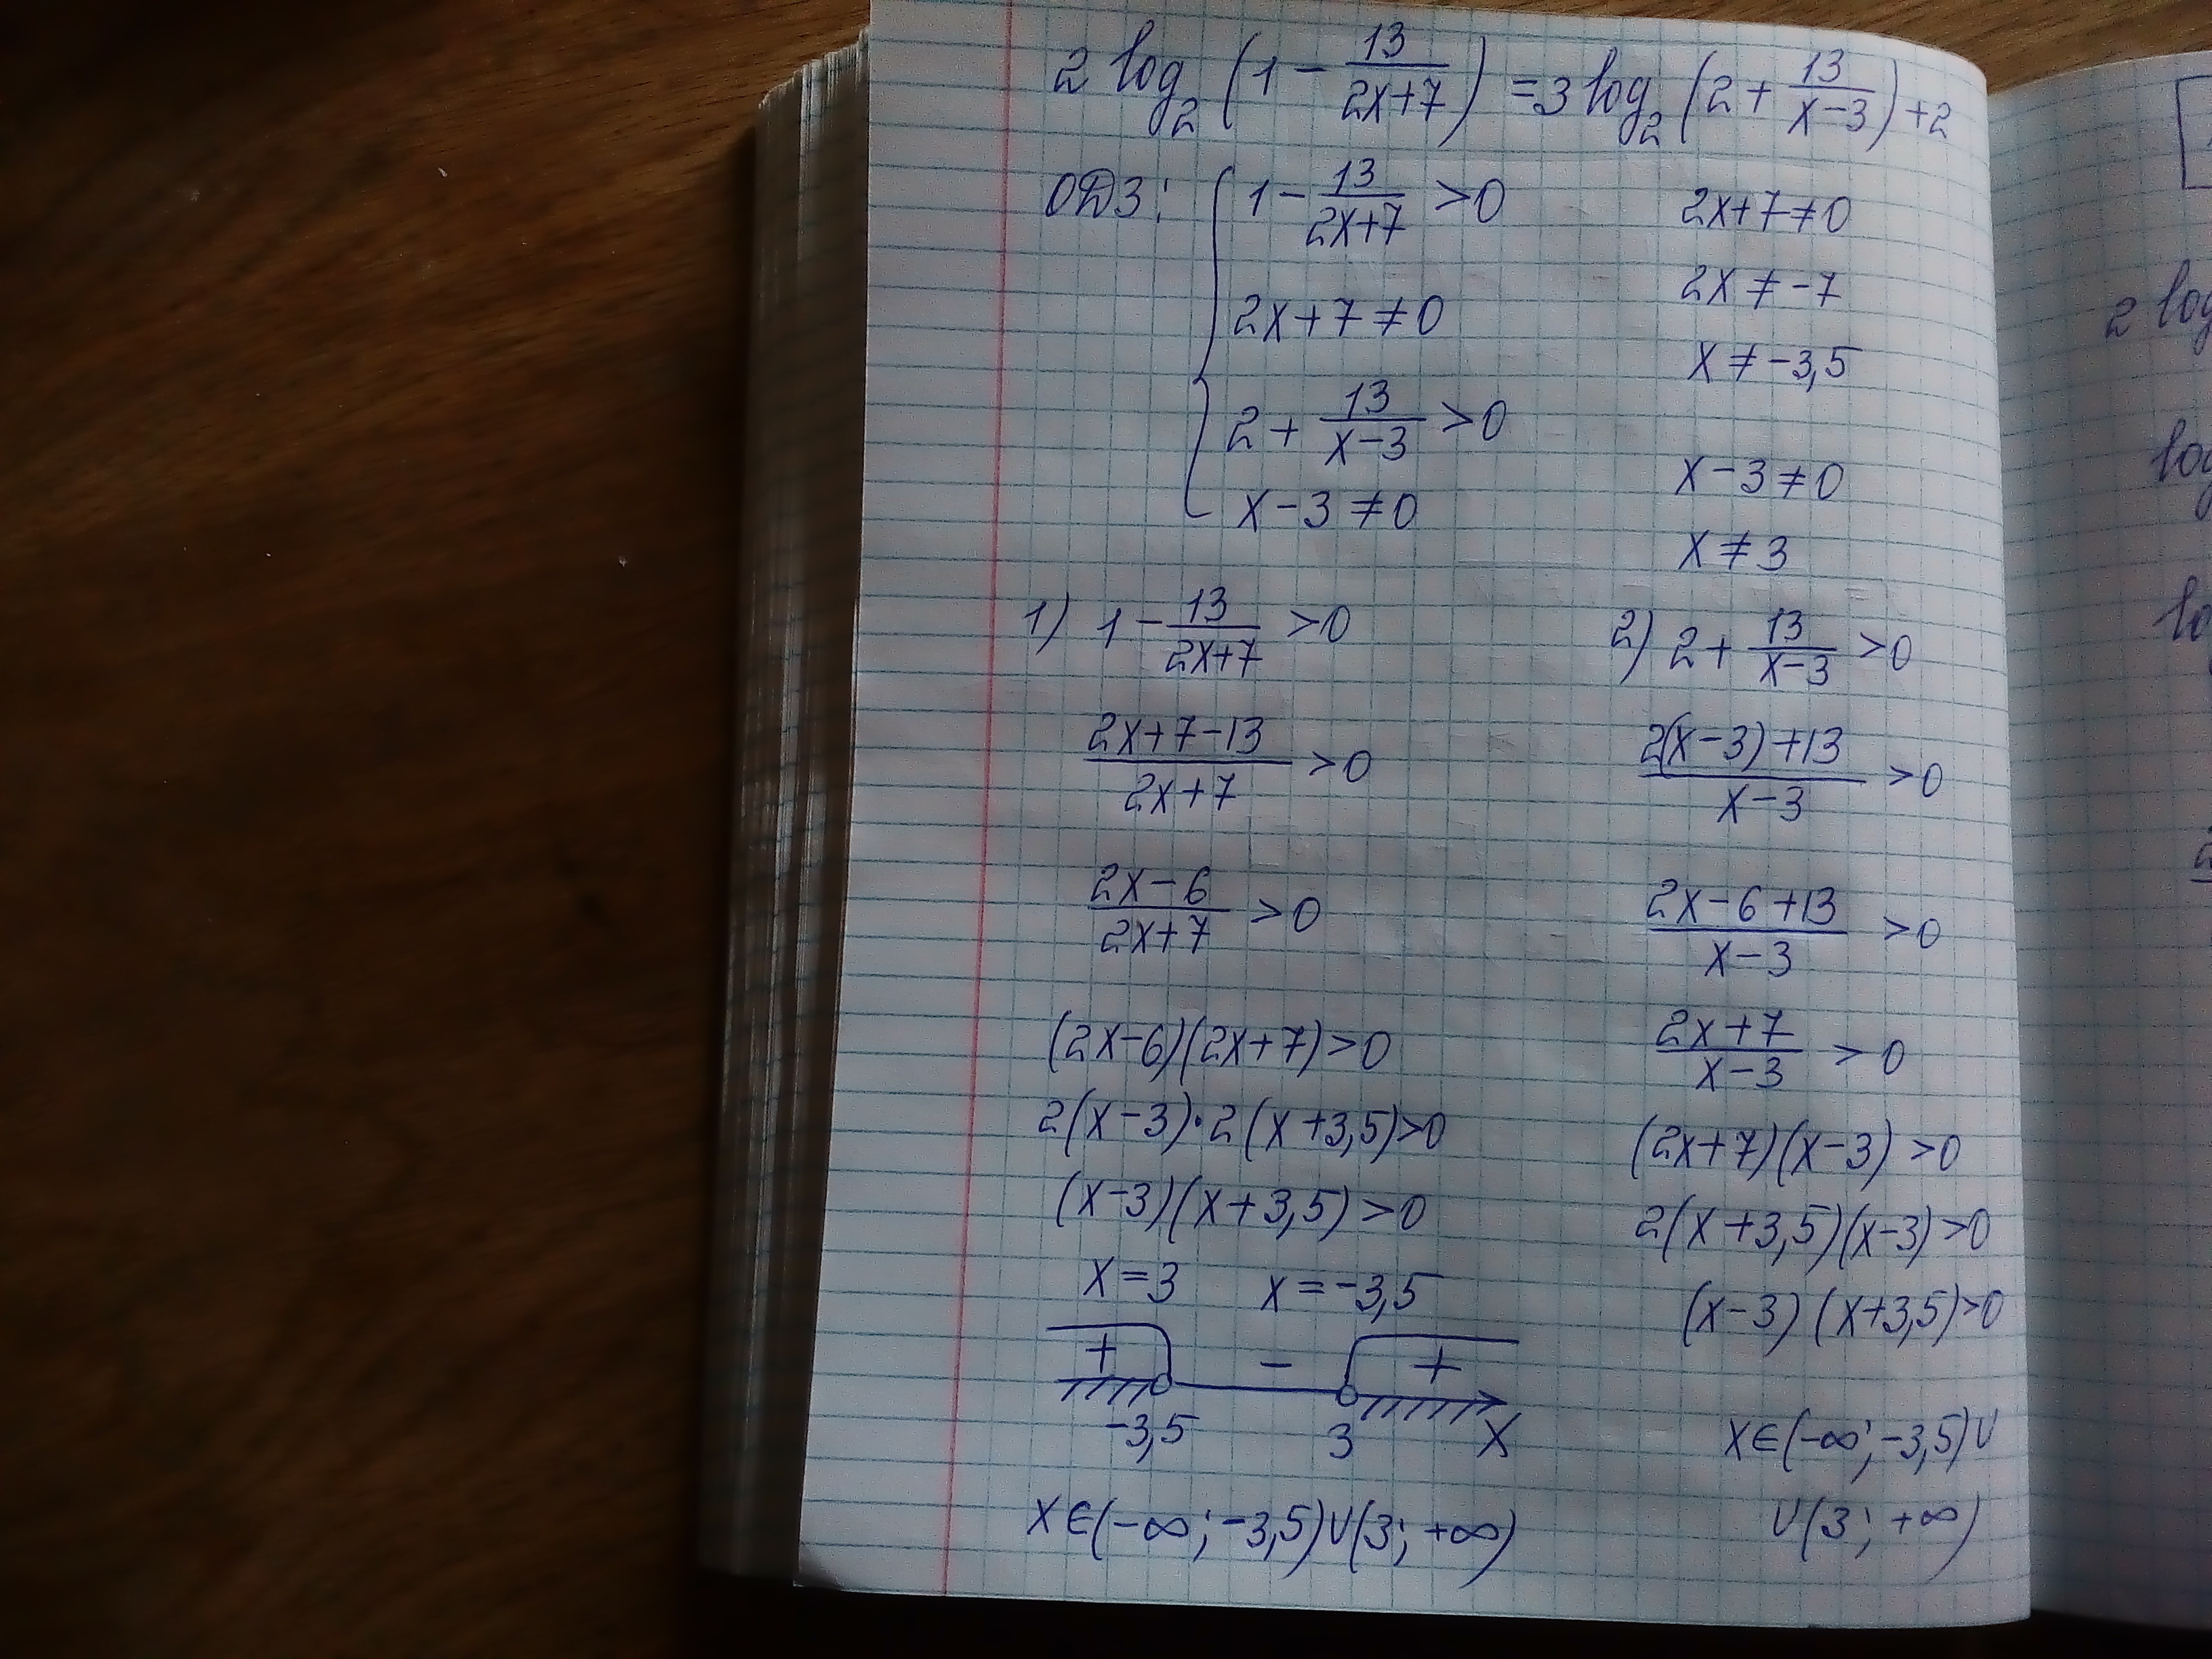 2 log₂ (1 − 13/(2x+7)) = 3 log₂ (2 + 13/(x−3)) + 2
ОДЗ: { 1 − 13/(2x+7) > 0
2x+7 ≠ 0
2 + 13/(x−3) > 0
x−3 ≠ 0
2x+7 ≠ 0
2x ≠ −7
x ≠ −3,5
x−3 ≠ 0
x ≠ 3
1) 1 − 13/(2x+7) > 0
(2x+7−13)/(2x+7) > 0
(2x−6)/(2x+7) > 0
(2x−6)(2x+7) > 0
2(x−3)·2(x+3,5) > 0
(x−3)(x+3,5) > 0
x = 3 x = −3,5
+ − +
−3,5 3 x
x ∈ (−∞; −3,5) ∪ (3; +∞)
2) 2 + 13/(x−3) > 0
(2(x−3)+13)/(x−3) > 0
(2x−6+13)/(x−3) > 0
(2x+7)/(x−3) > 0
(2x+7)(x−3) > 0
2(x+3,5)(x−3) > 0
(x−3)(x+3,5) > 0
x ∈ (−∞; −3,5) ∪
∪ (3; +∞)
2 log